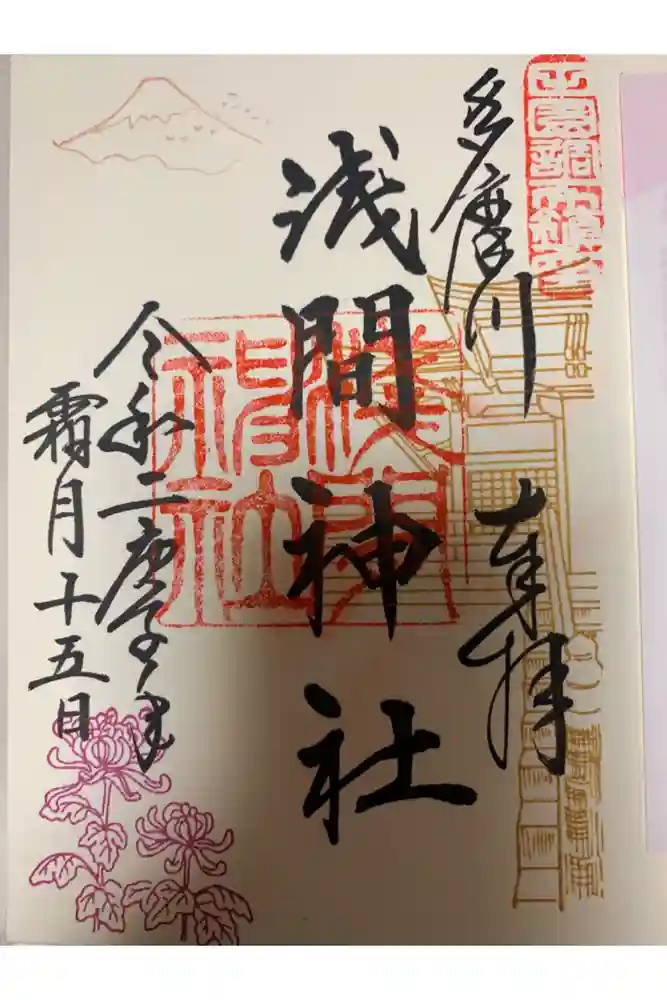 多摩川
奉拝
浅間神社
浅間
神社
令和二庚子年
霜月十五日